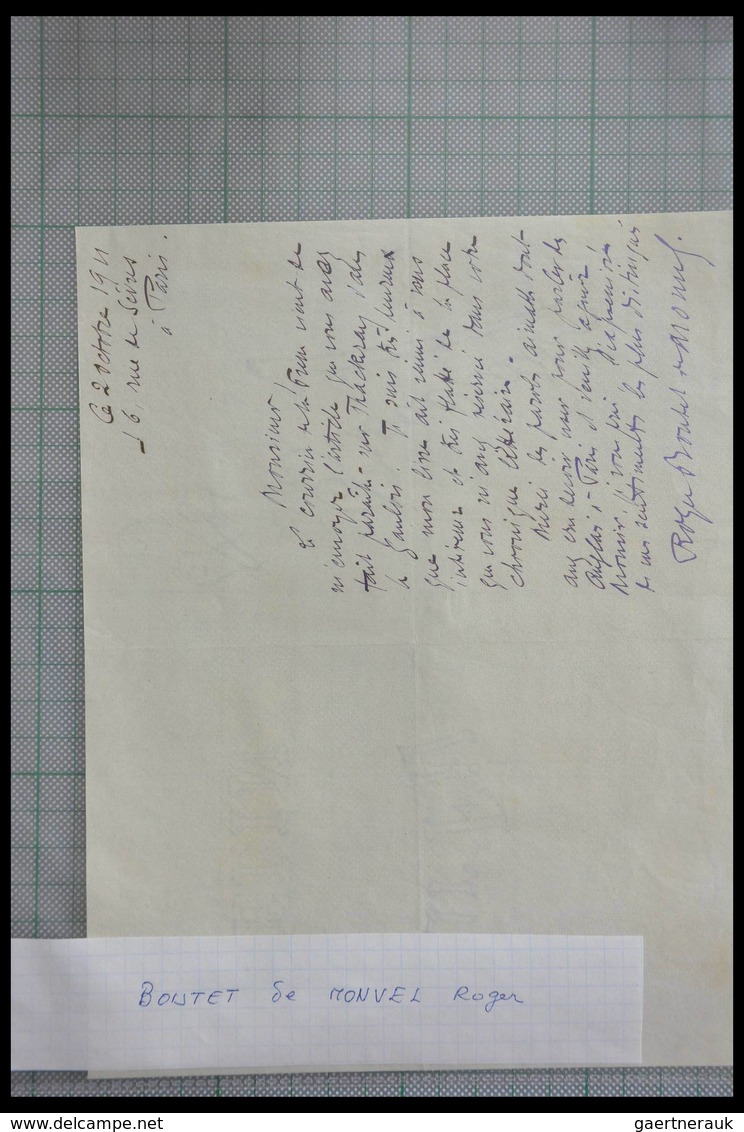 Ce 2 octobre 1911
16, rue de Sèvres
à Paris.
Monsieur,
Le courrier de la Presse vient de
m'envoyer l'article que vous avez
fait paraître sur Thackeray dans
le Gaulois. Je suis très heureux
que mon livre ait réussi à vous
intéresser et très flatté de la place
que vous m'avez réservée dans votre
chronique littéraire.
Merci des paroles aimables dont
avez
Anglais à Paris et veuillez agréer
Monsieur,
de mes sentiments les plus distingués
Roger Boutet de Monvel.
BOUTET de MONVEL Roger
gaertnerauk